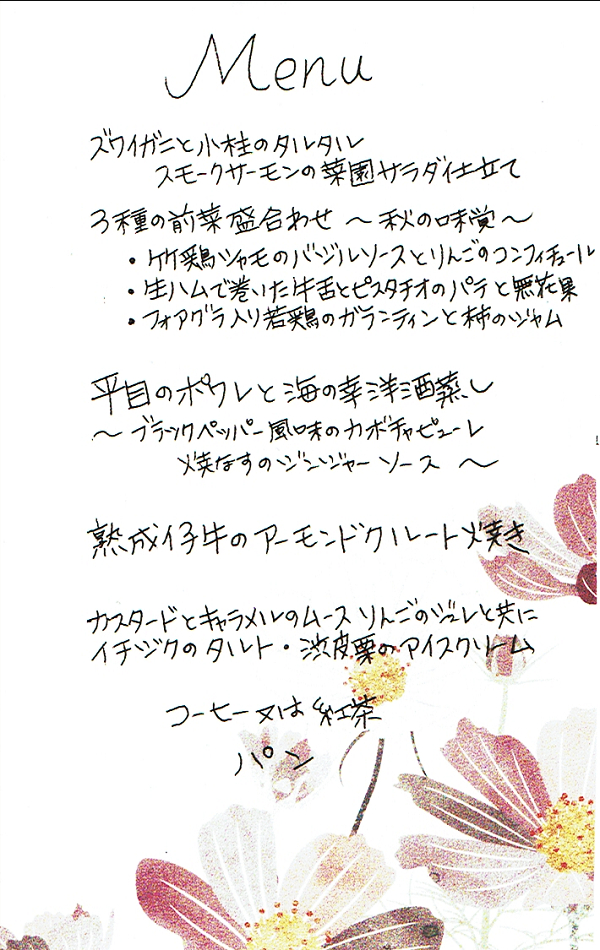 Menu
ズワイガニと小柱のタルタル
スモークサーモンの菜園サラダ仕立て
3種の前菜盛合わせ ～秋の味覚～
・竹鶏シャモのバジルソースとりんごのコンフィチュール
・生ハムで巻いた牛舌とピスタチオのパテと無花果
・フォアグラ入り若鶏のガランティンと柿のジャム
平目のポワレと海の幸洋酒蒸し
～ブラックペッパー風味のカボチャピューレ
焼なすのジンジャーソース ～
熟成仔牛のアーモンドクルート焼き
カスタードとキャラメルのムース りんごのジュレと共に
イチジクのタルト・渋皮栗のアイスクリーム
コーヒー又は紅茶
パン